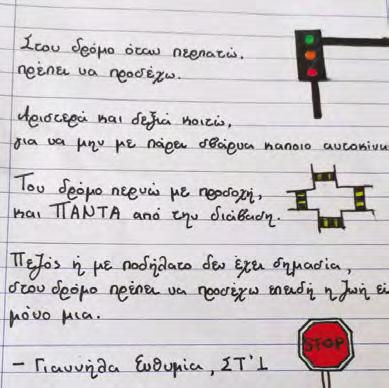 Στου δρόμο όταν περπατώ,
πρέπει να προσέχω.
Αριστερά και δεξιά κοιτώ,
για να μην με πάρει σβάρνα κάποιο αυτοκίνη
Του δρόμο περνώ με προσοχή,
και ΠΑΝΤΑ από την διάβαση.
Πεζός ή με ποδήλατο δεν έχει σημασία,
στου δρόμο πρέπει να προσέχω επειδή η ζωή εί
μόνο μια.
STOP
- Γιαννήλα Ευθυμία, ΣΤ'1